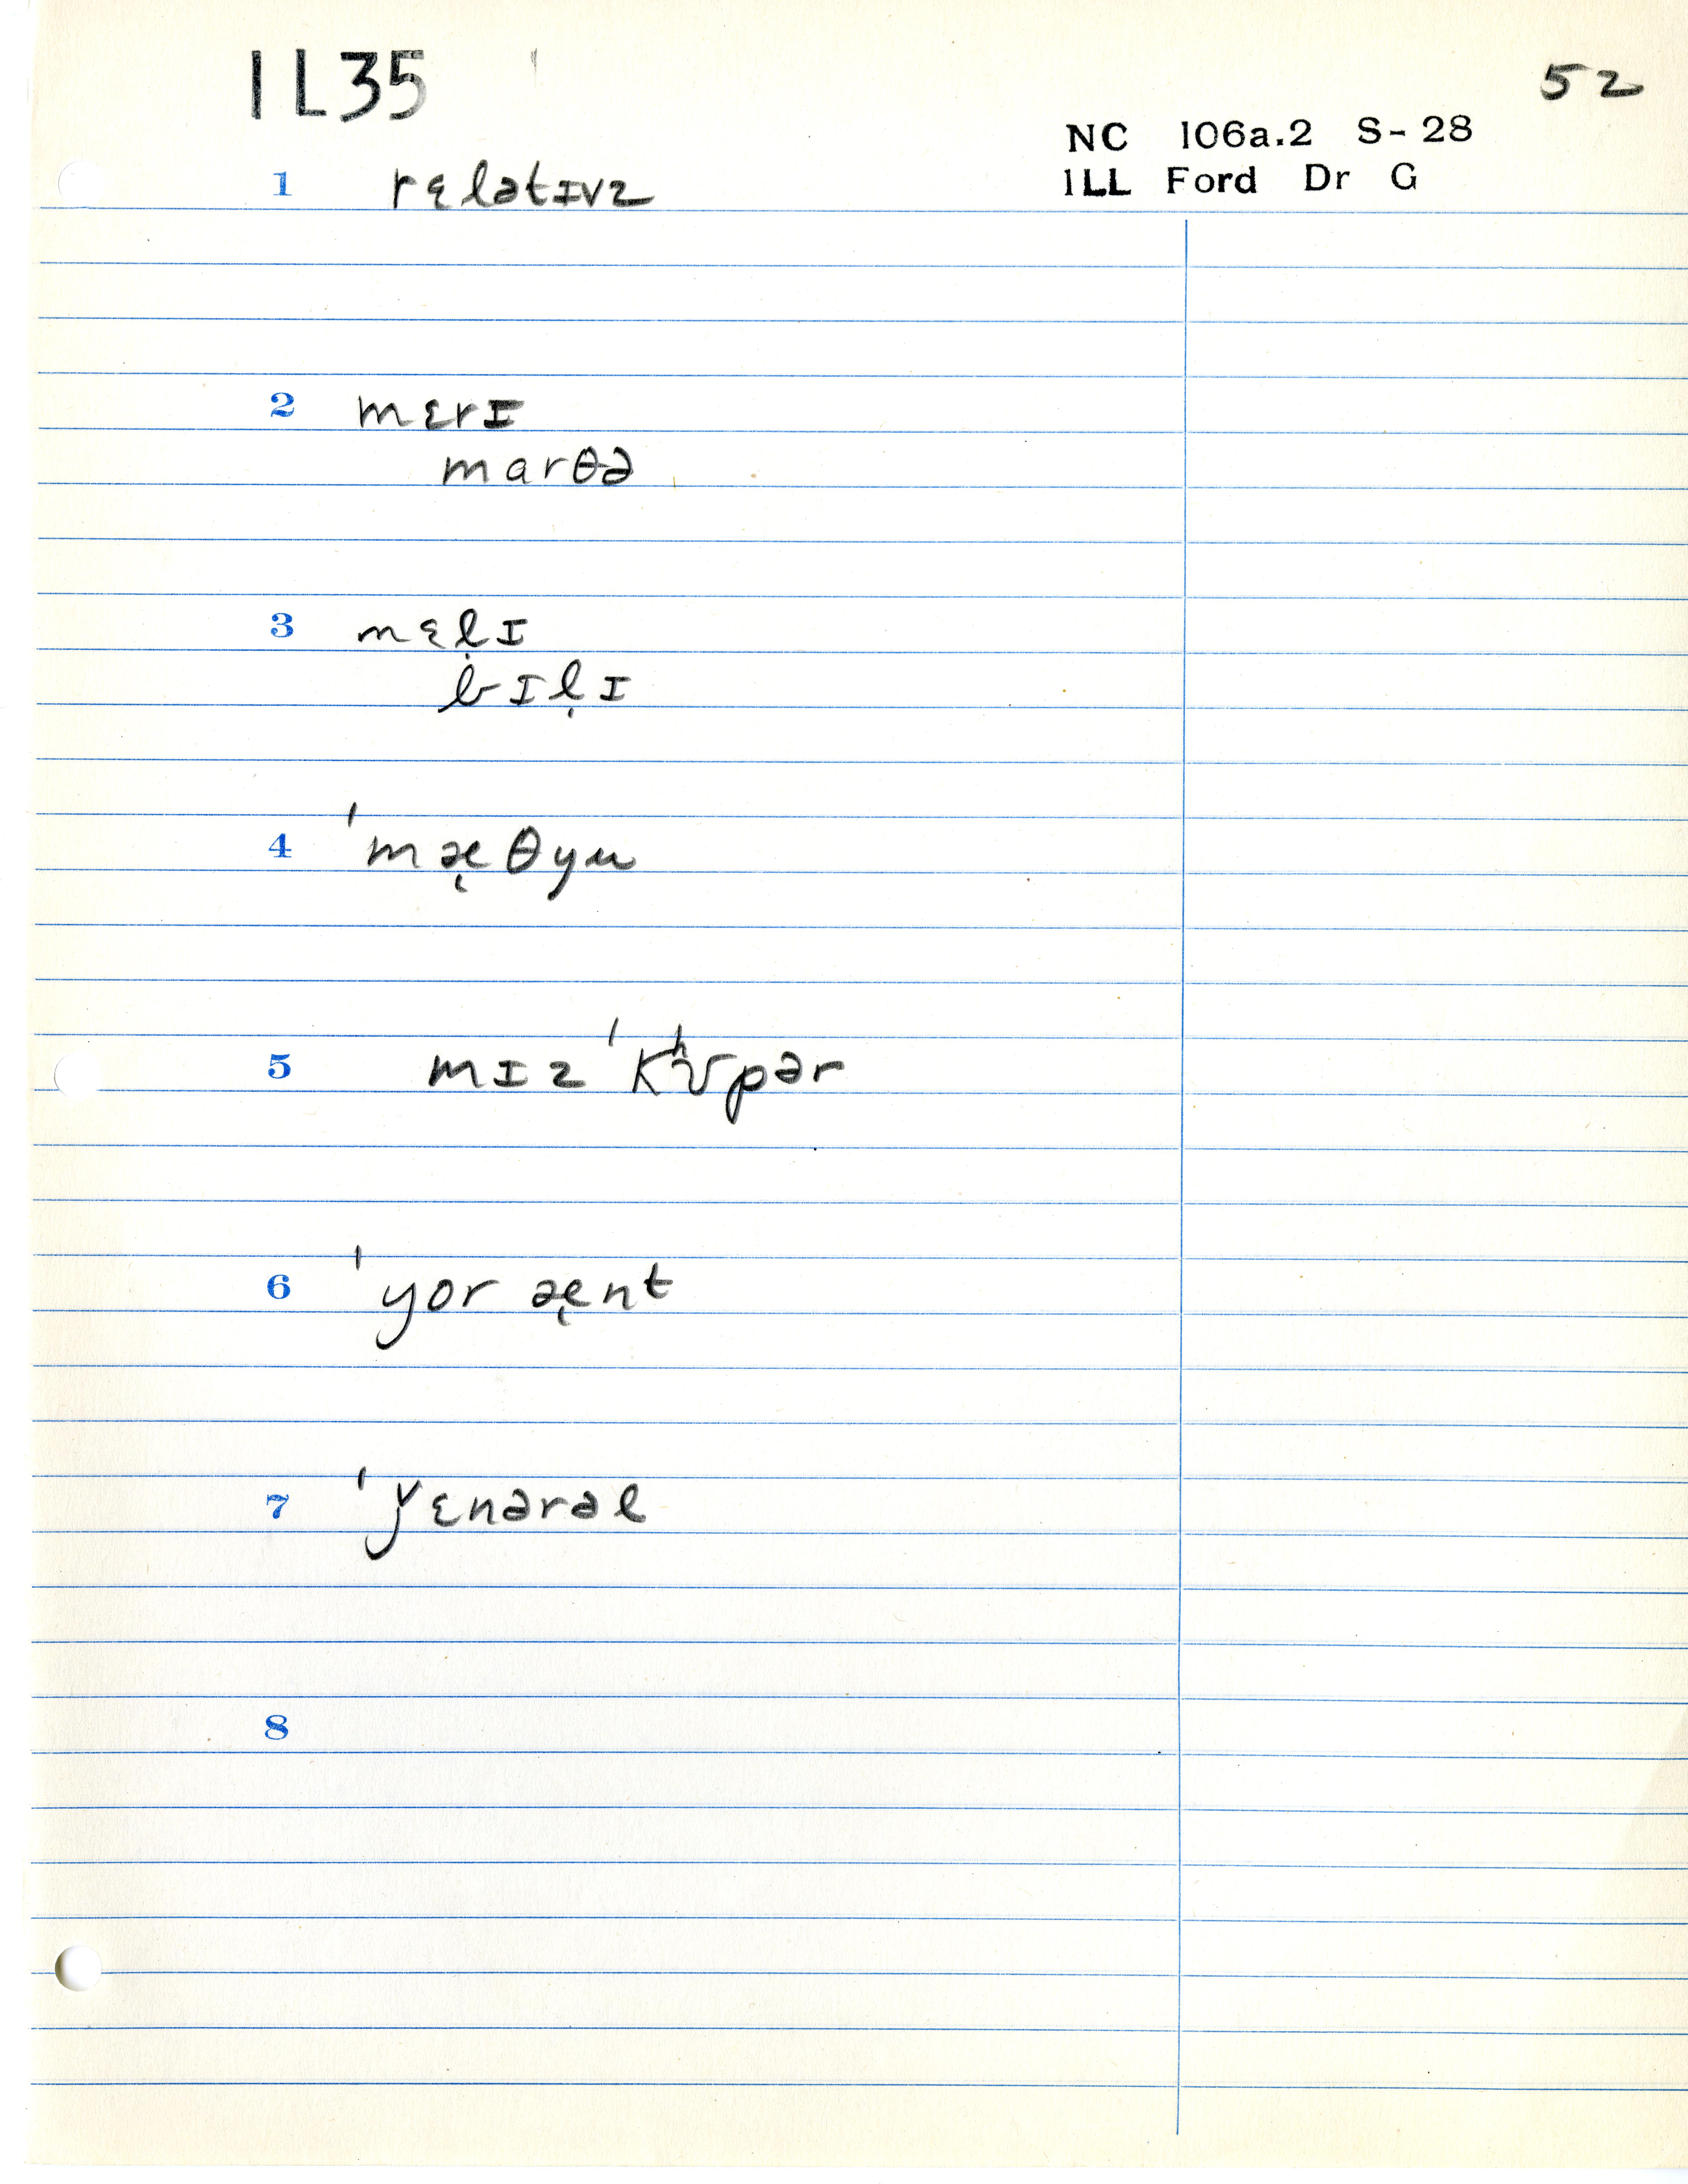 IL35
52
NC 106a.2 S-28
ILL Ford Dr G
1 rɛlətɪvz
2 mɛrɪ
marθə
3 mɛl̩ɪ
bɪl̩ɪ
4 ˈmæ̨θyu
5 mɪz ˈkʰʊpər
6 ˈyor æ̨nt
7 ˈy̌ɛnərəl
8